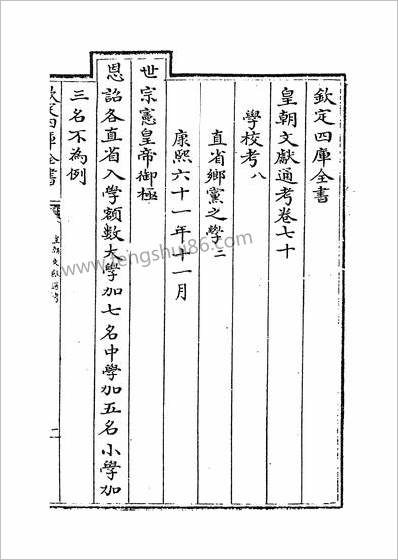 欽定四庫全書
皇朝文獻通考卷七十
學校考八
直省鄉黨之學二
康熙六十一年十一月
世宗憲皇帝御極
恩詔各直省入學額數大學加七名中學加五名小學加
三名不為例
欽定四庫全書
皇朝文獻通考
一
www.fengshui86.com